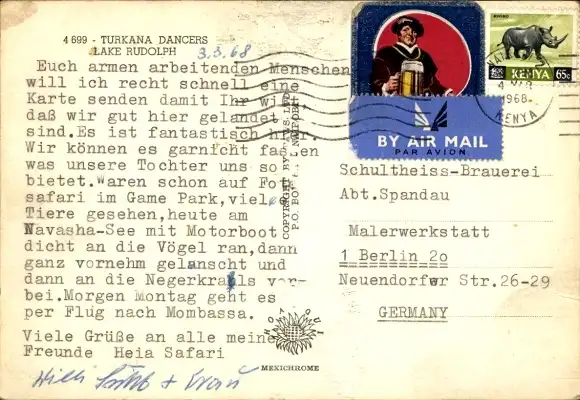 4 699 - TURKANA DANCERS
LAKE RUDOLPH
3.3.68
Euch armen arbeitenden Menschen
will ich recht schnell eine
Karte senden damit Ihr wißt
daß wir gut hier gelandet
sind.Es ist fantastisch hier.
Wir können es garnicht fassen
was unsere Tochter uns so
bietet.Waren schon auf Foto
safari im Game Park,viele
Tiere gesehen,heute am
Navasha-See mit Motorboot
dicht an die Vögel ran,dann
ganz vornehm gelanscht und
dann an die Negerkrals vor-
bei.Morgen Montag geht es
per Flug nach Mombassa.
Viele Grüße an alle meine
Freunde Heia Safari
Willi + Frau
COPYRIGHT BY
P.O. BOX
MEXICHROME
RHINO
KENYA 65c
4 MAR
1968
KENYA
BY AIR MAIL
PAR AVION
Schultheiss-Brauerei
Abt.Spandau
Malerwerkstatt
1 Berlin 20
Neuendorfer Str.26-29
GERMANY